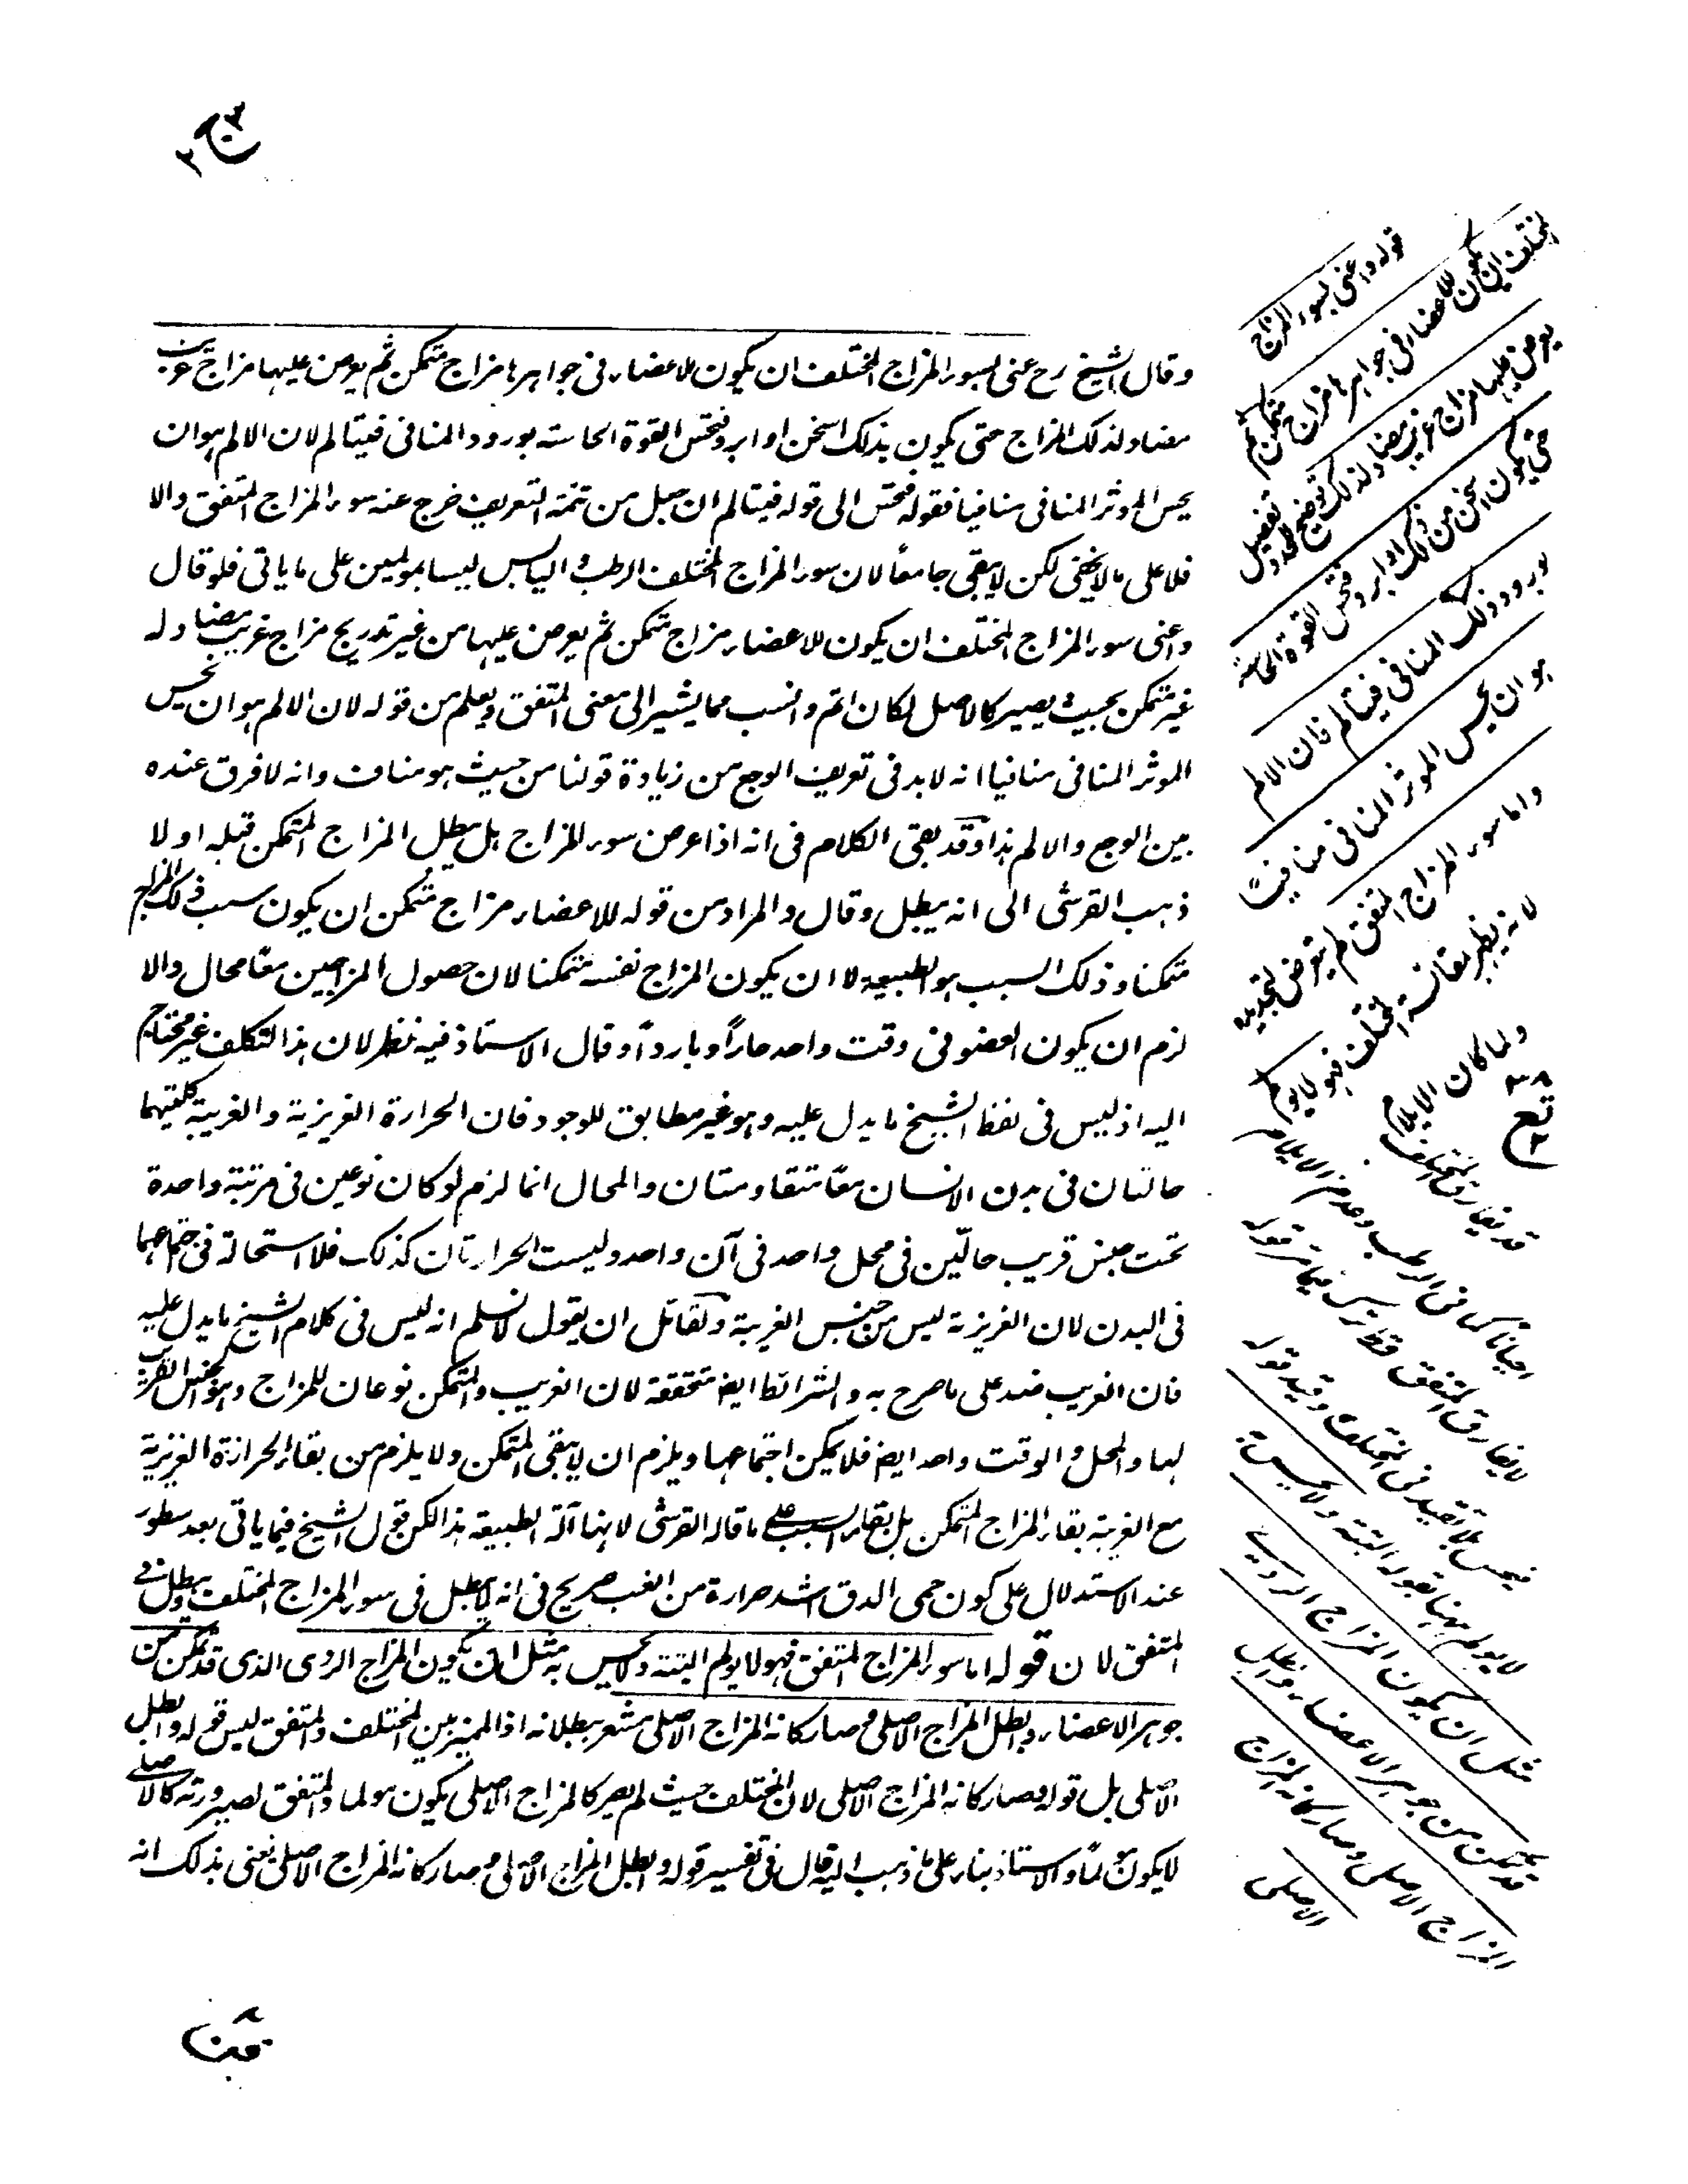 وقال الشيخ رح عنی بسوء المزاج المختلف ان یکون للاعضاء فی جواهرها مزاج متمکن ثم یعرض علیها مزاج غریب
مضاد لذلک المزاج حتی یکون بذلک اسخن او ابرد فتحس القوة الحاسة بورود المنافی فیتالم لان الالم هو ان
یحس الموثر المنافی منافیا فقوله فتحس الی قوله فیتالم ان جعل من تتمة التعریف خرج عنه سوء المزاج المتفق والا
فلا علی ما لا یخفی لکن لا یبقی جامعا لان سوء المزاج المختلف الرطب و الیابس لیسا بمولمین علی ما یاتی فلو قال
واعنی سوء المزاج المختلف ان یکون للاعضاء مزاج متمکن ثم یعرض علیها من غیر تدریج مزاج غریب مضاد له
غیر متمکن بحیث یصیر کالاصل لکان اتم و انسب مما یشیر الی معنی المتفق و یعلم من قوله لان الالم هو ان یحس
الموثر المنافی منافیا انه لا بد فی تعریف الوجع من زیادة قولنا من حیث هو مناف وانه لا فرق عنده
بین الوجع والالم هذا وقد بقی الکلام فی انه اذا عرض سوء المزاج هل یبطل المزاج المتمکن قبله او لا
ذهب القرشی الی انه یبطل وقال والمراد من قوله للاعضاء مزاج متمکن ان یکون سبب ذلک المزاج
متمکنا وذلک السبب هو الطبیعة لا ان یکون المزاج نفسه متمکنا لان حصول المزاجین معا محال والا
لزم ان یکون العضو فی وقت واحد حاراً و بارداً وقال الاستاذ فیه نظر لان هذا التکلف غیر محتاج
الیه اذ لیس فی لفظ الشیخ ما یدل علیه وهو غیر مطابق للوجود فان الحرارة الغریزیة والغریبة کلتیهما
حالتان فی بدن الانسان معا متقاومتان والمحال انما لزم لو کان نوعین فی مرتبة واحدة
تحت جنس قریب حالّین فی محل واحد فی آن واحد ولیست الحرارتان کذلک فلا استحالة فی اجتماعهما
فی البدن لان الغریزیة لیس من جنس الغریبة ولقائل ان یقول لا نسلم انه لیس فی کلام الشیخ ما یدل علیه
فان الغریب ضد علی ما صرح به والشرائط ایض متحققة لان الغریب والمتمکن نوعان للمزاج وهو الجنس القریب
لهما والمحل و الوقت واحد ایض فلا یمکن اجتماعهما ویلزم ان لا یبقی المتمکن ولا یلزم من بقاء الحرارة الغریزیة
مع الغریبة بقاء المزاج المتمکن بل بقاء السبب علی ما قاله القرشی لانها آلة الطبیعة هذا لکن قول الشیخ فیما یاتی بعد سطور
عند الاستدلال علی کون حمی الدق اشد حرارة من الغب صریح فی انه لا یبطل فی سوء المزاج المختلف و یبطل فی
المتفق لا ن قوله اما سوء المزاج المتفق فهو لا یولم البتة ولا یحس به مثل ان یکون المزاج الردی الذی قد تمکن من
جوهر الاعضاء و ابطل المزاج الاصلی و صار کانه المزاج الاصلی مشعر ببطلانه اذ الممیز بین المختلف والمتفق لیس قوله وابطل
الاصلی بل قوله وصار کانه المزاج الاصلی لان المختلف حیث لم یصر کالمزاج الاصلی یکون مولما والمتفق لصیرورته کالاصلی
لا یکون مولماً و الاستاذ بناء علی ما ذهب الیه قال فی تفسیر قوله وابطل المزاج الاصلی و صار کانه المزاج الاصلی یعنی بذلک انه
قوله واعنی بسوء المزاج
المختلف ان یکون للاعضاء فی جواهرها مزاج متمکن ثم
یعرض علیها مزاج غریب مضاد لذلک
حتی یکون اسخن من ذلک او ابرد فتحس القوة الحاسة
بورود ذلک المنافی فیتالم فان الالم
هو ان یحس الموثر المنافی منافیاً
واما سوء المزاج المتفق لم یتعرض لتحدیده
لانه یظهر بمقایسة المختلف فهو لا یولم
ولما کان الایلام
قد یفارق المختلف
لا یولم بها بقوله البتة ولا یحس به
مثل ان یکون المزاج الردی
قد تمکن من جوهر الاعضاء وابطل
المزاج الاصلی وصار کانه المزاج
الاصلی